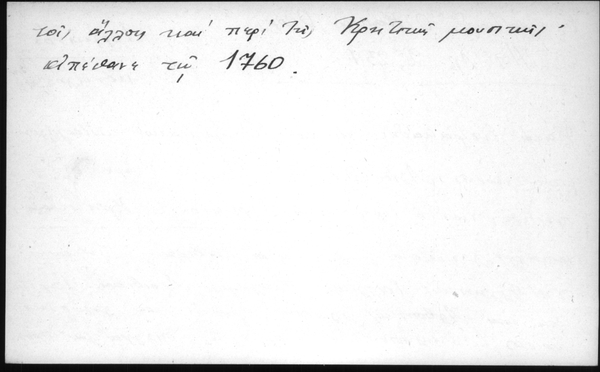 τοῖς ἄλλοις καὶ περὶ τῆς Κρητικῆς μουσικῆς·
ἀπέθανε τῷ 1760.